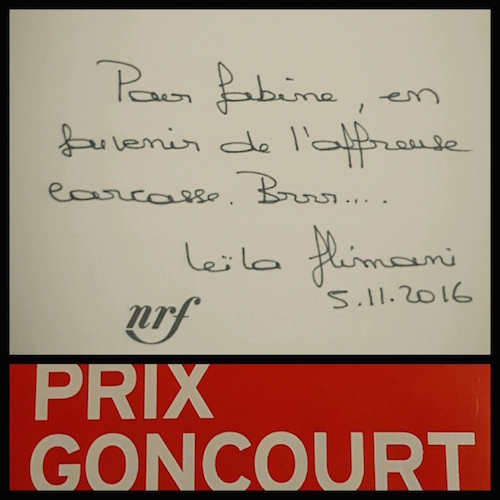 Pour Sabine, en
souvenir de l'affreuse
carcasse. Brrr....
Leïla Slimani
5.11.2016
nrf
PRIX
GONCOURT